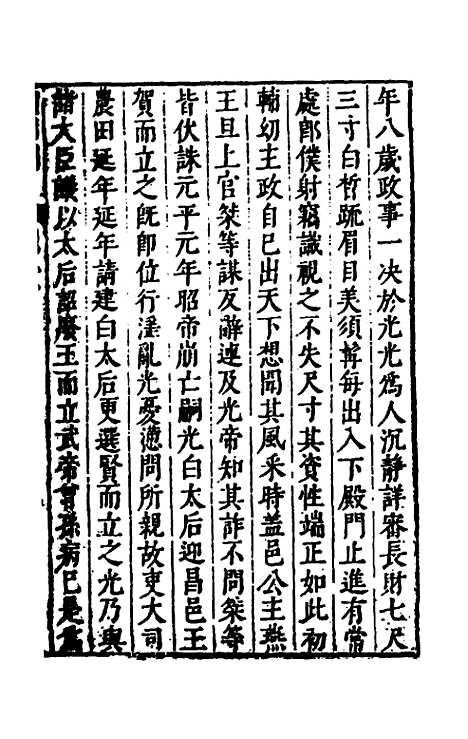 年八歲政事一决於光光爲人沉靜詳審長財七尺
三寸白晳䟽眉目美須髯每出入下殿門止進有常
處郎僕射竊識視之不失尺寸其資性端正如此初
輔幼主政自己出天下想聞其風采時盖邑公主燕
王旦上官桀等謀反辭連及光帝知其詐不問桀等
皆伏誅元平元年昭帝崩亡嗣光白太后迎昌邑王
賀而立之旣卽位行滛亂光憂懣問所親故吏大司
農田延年延年請建白太后更選賢而立之光乃與
諸大臣議以太后詔廢王而立武帝曾孫病已是爲